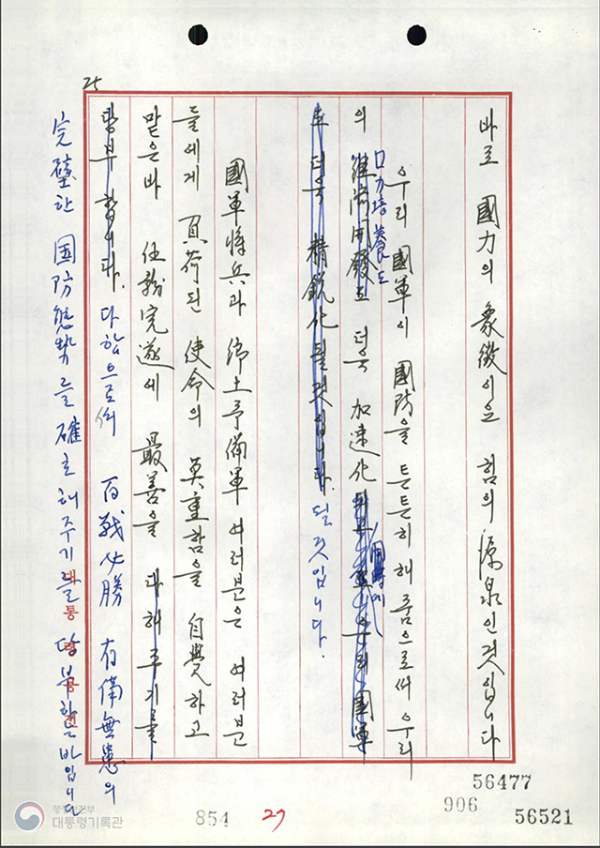 25
바로 國力의 象徵이요 힘의 源泉인것입니다
우리 國軍이 國防을 튼튼히 해줌으로써 우리
力培養도
의 經濟開發도 더욱 加速化
도 더욱 精鋭化될것입니다. 될것입니다.
國軍將兵과 鄕土予備軍 여러분은 여러분
들에게 負荷된 使命의 莫重함을 自覺하고
맡은바 任務完遂에 最善을 다해주기를
당부합니다. 다함으로써 百戰必勝 有備無患의
完璧한 国防態勢를 確立해주기를 당부하는바입니다
56477
906
56521
854
27
행정안전부
대통령기록관